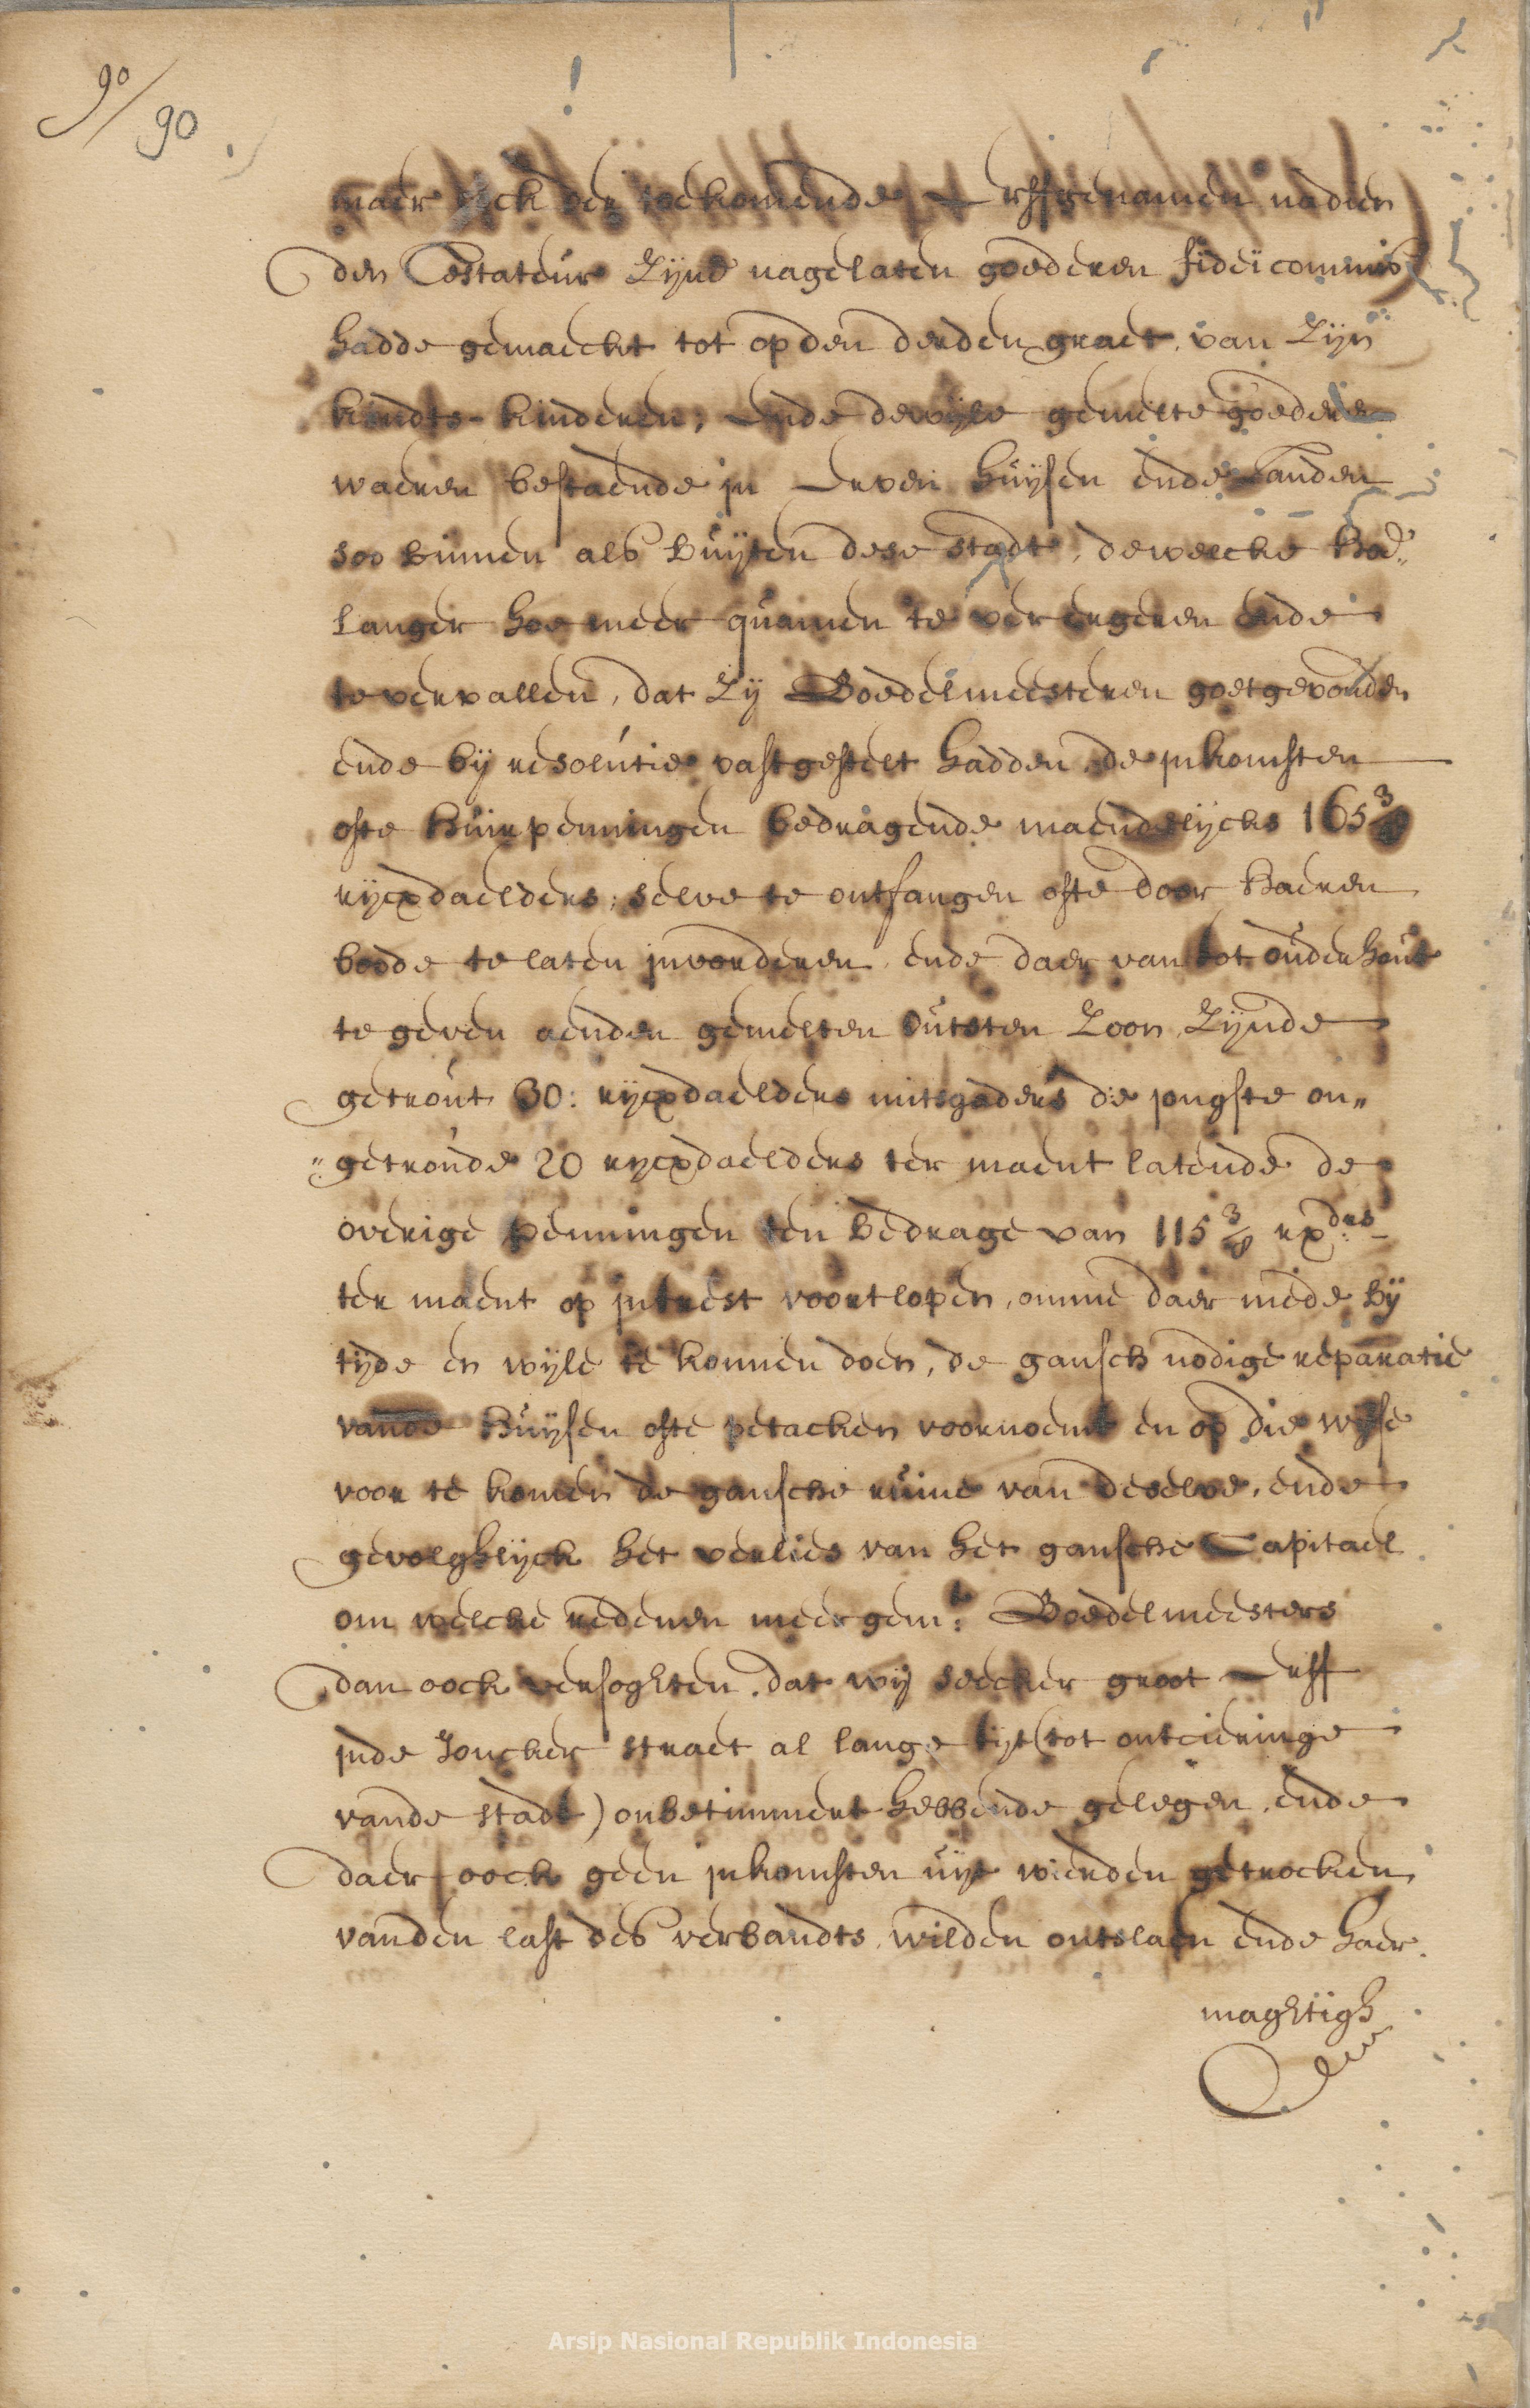 90/90
maer ock der toekomende Erffgenamen nadien
den Testateur Zijne nagelaten goederen fideicommis
hadde gemaeckt tot op den derden graet van Zijn
kindts-kinderen; Ende dewijle gemelte goederen
waeren bestaende in Erven huijsen ende Landen
soo binnen als buijten dese stadt, dewelcke hoe„
langer hoe meer quamen te verergeren ende
te vervallen, dat Zij Boedelmeesteren goetgevonden
ende bij resolutie vastgestelt hadden de inkomsten
ofte huirpenningen bedragende maendelijcks 165 3/8
rijcxdaelders; selve te ontfangen ofte door haeren
bode te laten invorderen ende daer van tot onderhout
te geven aenden gemelten outsten Zoon Zijnde
getrout 30: rijcxdaelders mitsgaders de jongste on„
„getroude 20 rijcxdaelders ter maent latende de
overige penningen ten bedrage van 115 3/8 rxd:rs
ter maent op intrest voortlopen, omme daer mede bij
tijde en wijle te konnen doen, de gansch nodige reparatie
vande huijsen ofte petacken voornoemt en op die wijse
voor te komen de gansche ruine van deselve, ende
gevolghlijck het verlies van het gansche Capitael
om welche redenen meergem:te Boedelmeesters
dan oock versoghten. dat wij seecker groot Erff
inde Joncker straet al lange tijt (tot ontcieringe
vande stadt) onbetimmert hebbende gelegen, ende
daer oock geen inkomsten uijt wierden getrocken
vanden last des verbandts wilden ontslaen ende haer
maghtigh
Arsip Nasional Republik Indonesia